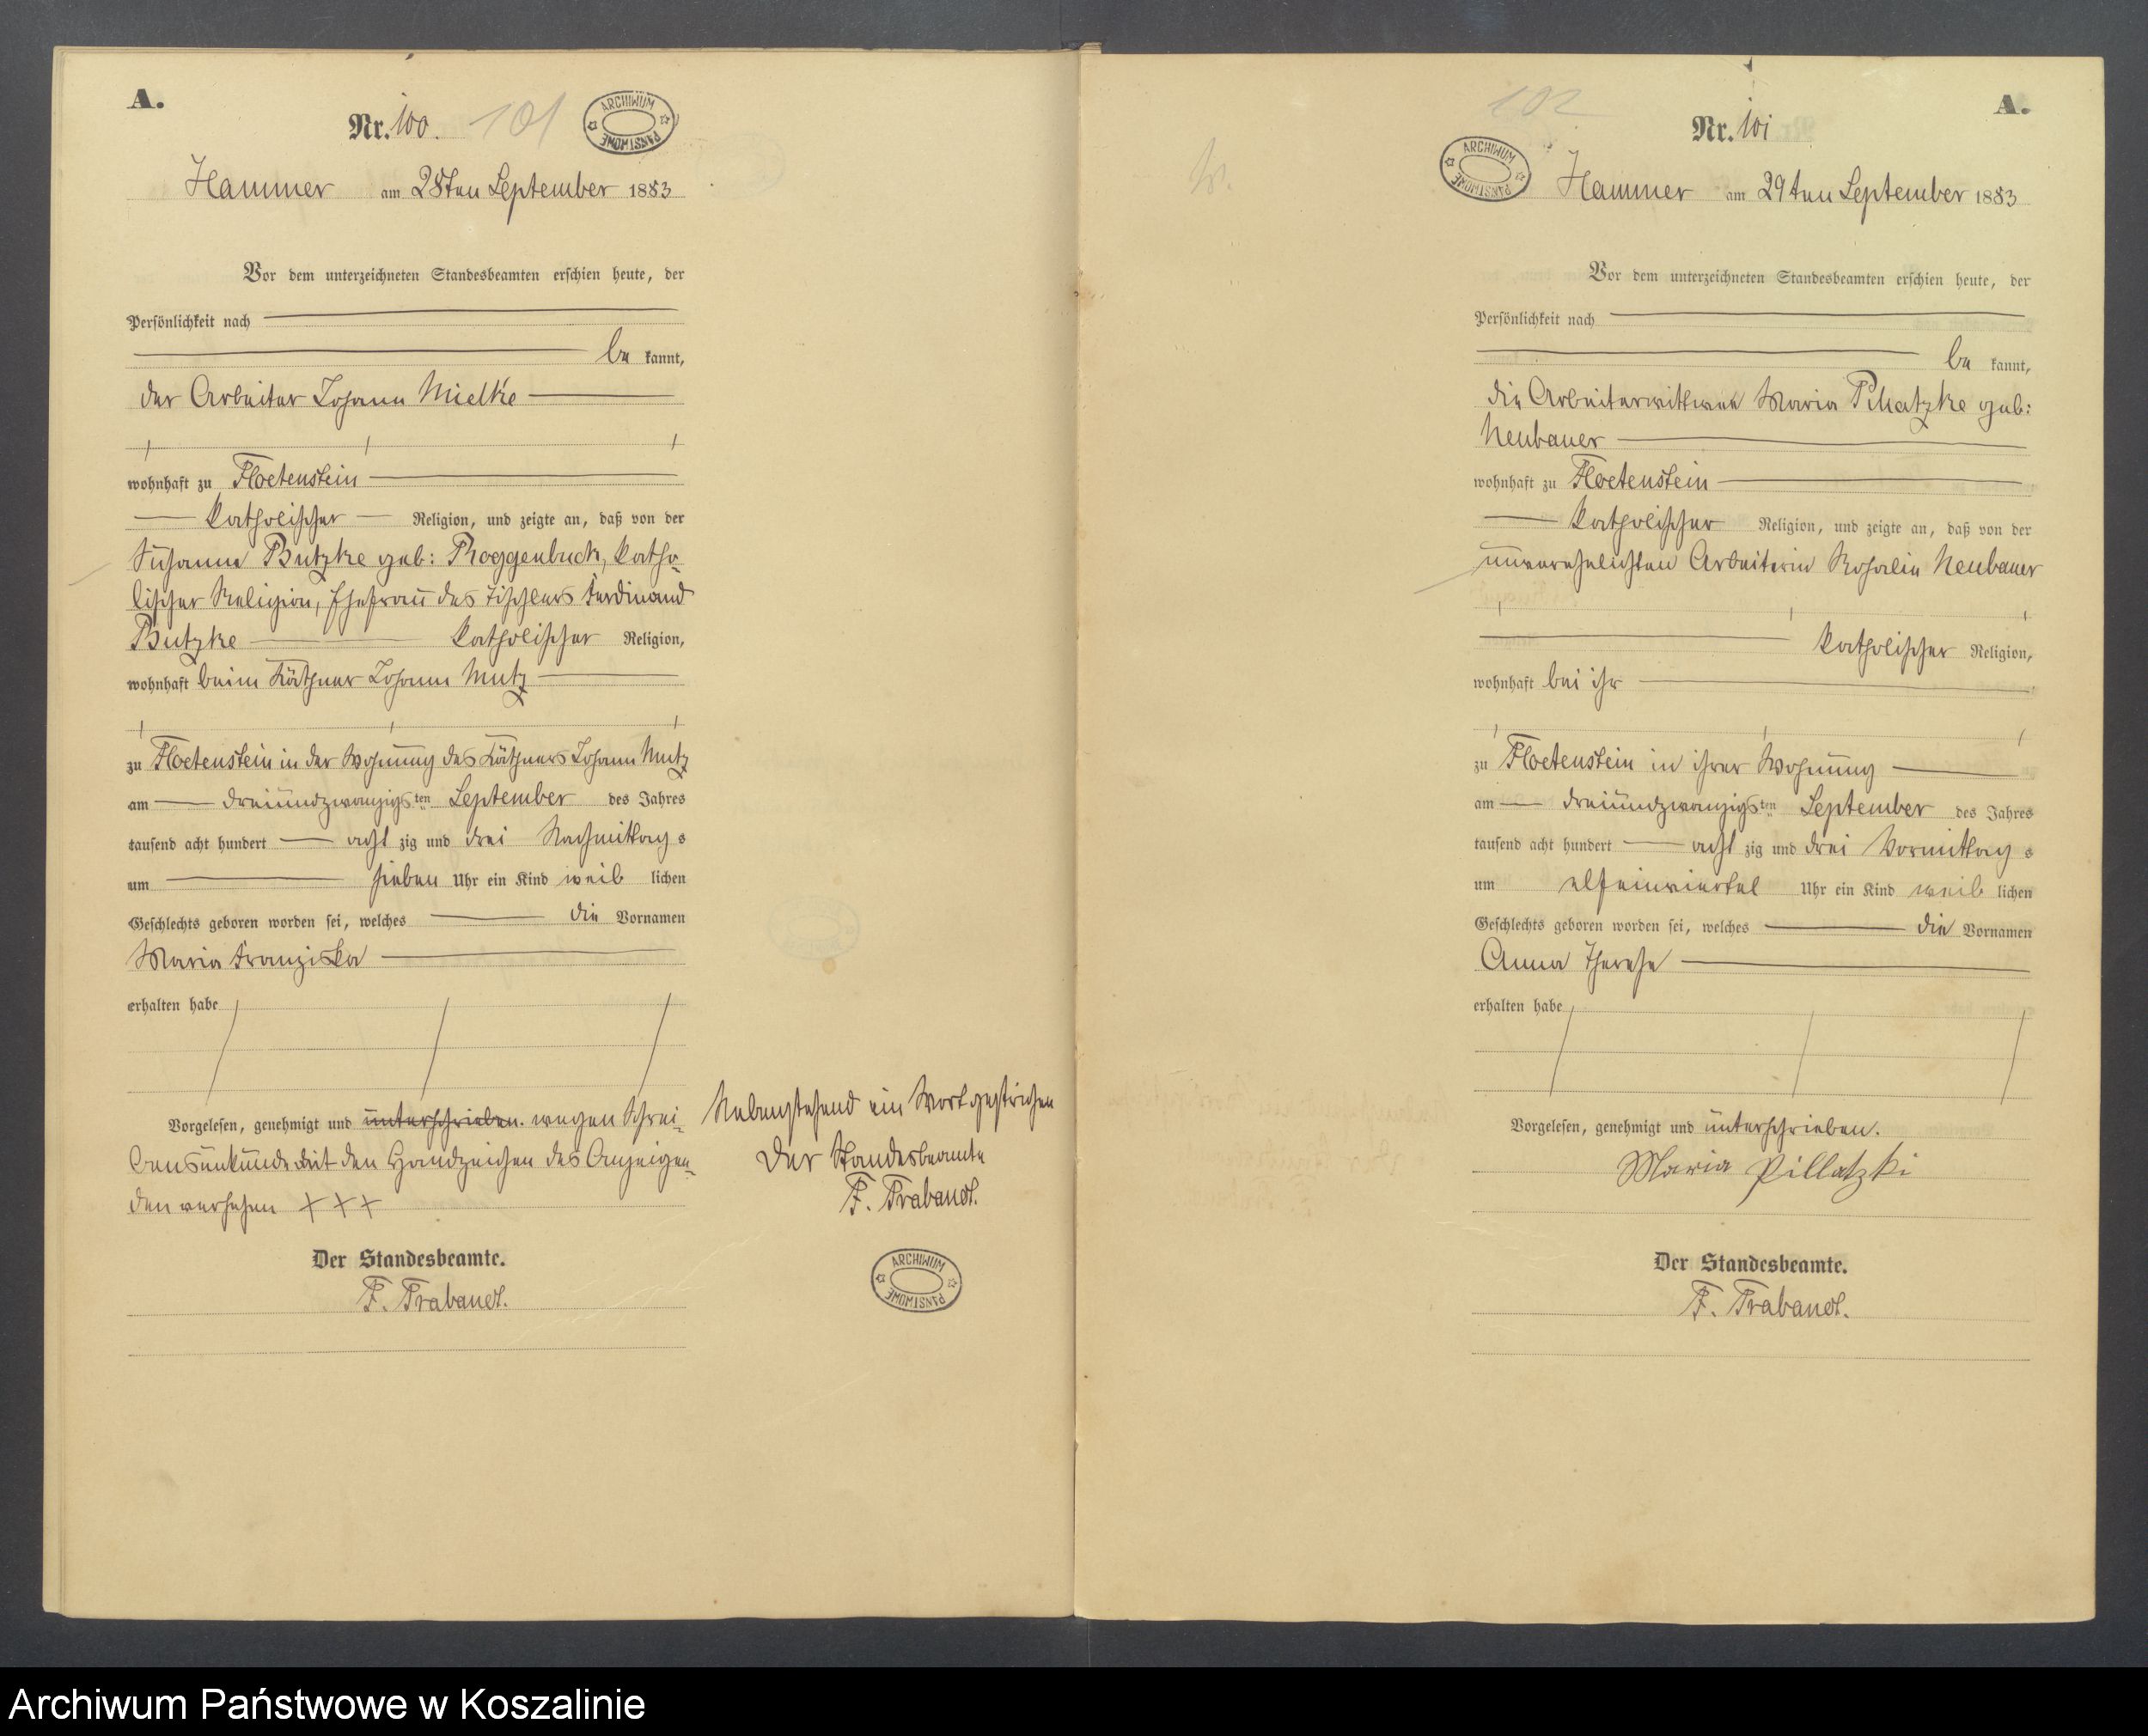 A.
Nr. 100. 101
ARCHIWUM PAŃSTWOWE
Hammer am 28ten September 1883
Vor dem unterzeichneten Standesbeamten erschien heute, der
Persönlichkeit nach
be kannt,
der Arbeiter Johann Mielke
wohnhaft zu Floetenstein
katholischer Religion, und zeigte an, daß von der
Susanna Butzke geb: Roggenbuck, katho-
lischer Religion, Ehefrau des Tischlers Ferdinand
Butzke katholischer Religion,
wohnhaft beim Käthner Johann Mutz
zu Floetenstein in der Wohnung des Käthners Johann Mutz
am dreiundzwanzigsten September des Jahres
tausend acht hundert acht zig und drei Nachmittags
um sieben Uhr ein Kind weib lichen
Geschlechts geboren worden sei, welches die Vornamen
Maria Franziska
erhalten habe
Vorgelesen, genehmigt und unterschrieben. wegen Schrei-
bensunkunde mit den Handzeichen des Anzeigen-
den versehen + + +
Der Standesbeamte.
F. Trabandt.
Nebenstehend ein Wort gestrichen
Der Standesbeamte
F. Trabandt.
ARCHIWUM PAŃSTWOWE
A.
102
Nr. 101
ARCHIWUM PAŃSTWOWE
Hammer am 29ten September 1883
Vor dem unterzeichneten Standesbeamten erschien heute, der
Persönlichkeit nach
be kannt,
die Arbeiterwittwe Maria Pillatzke geb:
Neubauer
wohnhaft zu Floetenstein
katholischer Religion, und zeigte an, daß von der
unverehelichten Arbeiterin Rosalie Neubauer
katholischer Religion,
wohnhaft bei ihr
zu Floetenstein in ihrer Wohnung
am dreiundzwanzigsten September des Jahres
tausend acht hundert acht zig und drei Vormittags
um elfeinviertel Uhr ein Kind weib lichen
Geschlechts geboren worden sei, welches die Vornamen
Anna Therese
erhalten habe
Vorgelesen, genehmigt und unterschrieben.
Maria Pillatzki
Der Standesbeamte.
F. Trabandt.
Archiwum Państwowe w Koszalinie